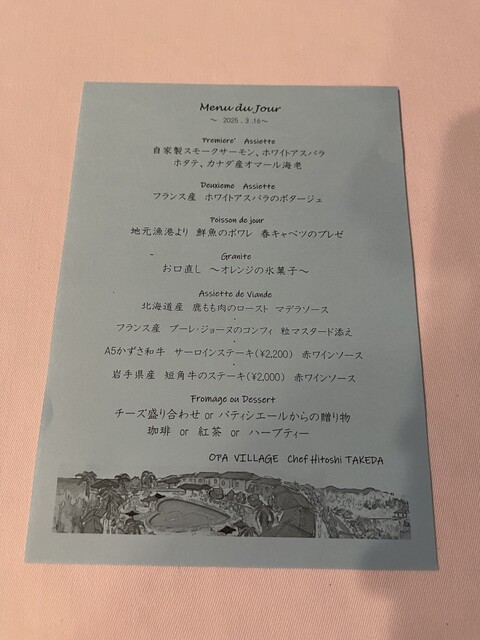 Menu du Jour
～ 2025．3．16～
Premiere' Assiette
自家製スモークサーモン、ホワイトアスパラ
ホタテ、カナダ産オマール海老
Deuxieme Assiette
フランス産 ホワイトアスパラのポタージュ
Poisson de jour
地元漁港より 鮮魚のポワレ 春キャベツのブレゼ
Granite
お口直し ～オレンジの氷菓子～
Assiette de Viande
北海道産 鹿もも肉のロースト マデラソース
・
フランス産 プーレ・ジョーヌのコンフィ 粒マスタード添え
・
A5かずさ和牛 サーロインステーキ(¥2,200) 赤ワインソース
・
岩手県産 短角牛のステーキ(¥2,000) 赤ワインソース
Fromage ou Dessert
チーズ盛り合わせ or パティシエールからの贈り物
珈琲 or 紅茶 or ハーブティー
OPA VILLAGE Chef Hitoshi TAKEDA